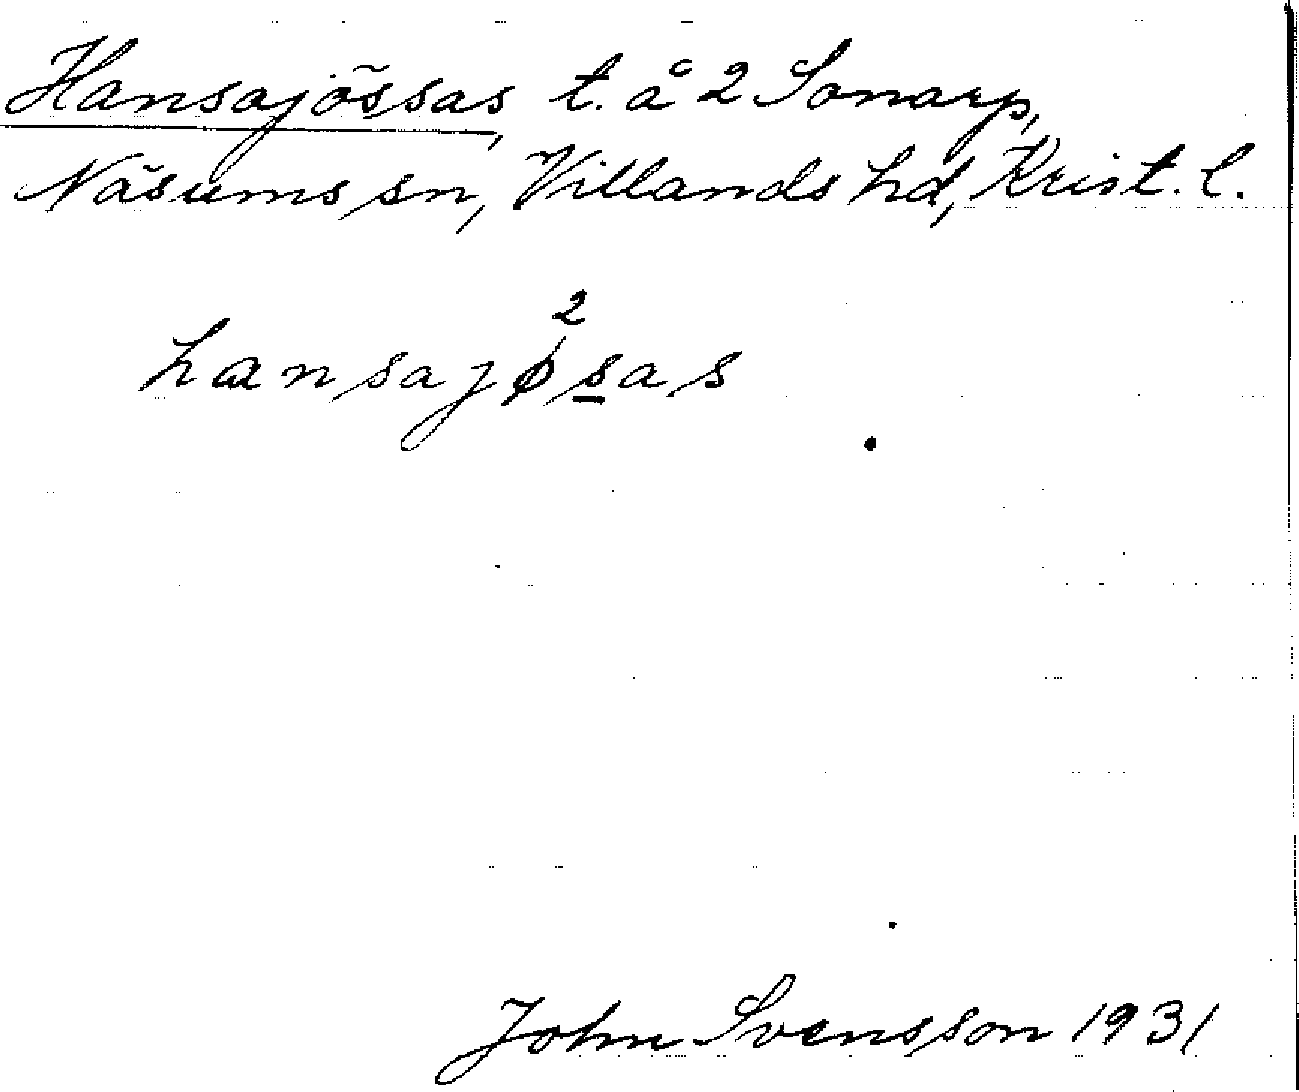 Hansajössas, t. å 2 Sonarp,
Näsums sn, Villands hd, Krist. l.
2
hansajøsas
John Svensson 1931